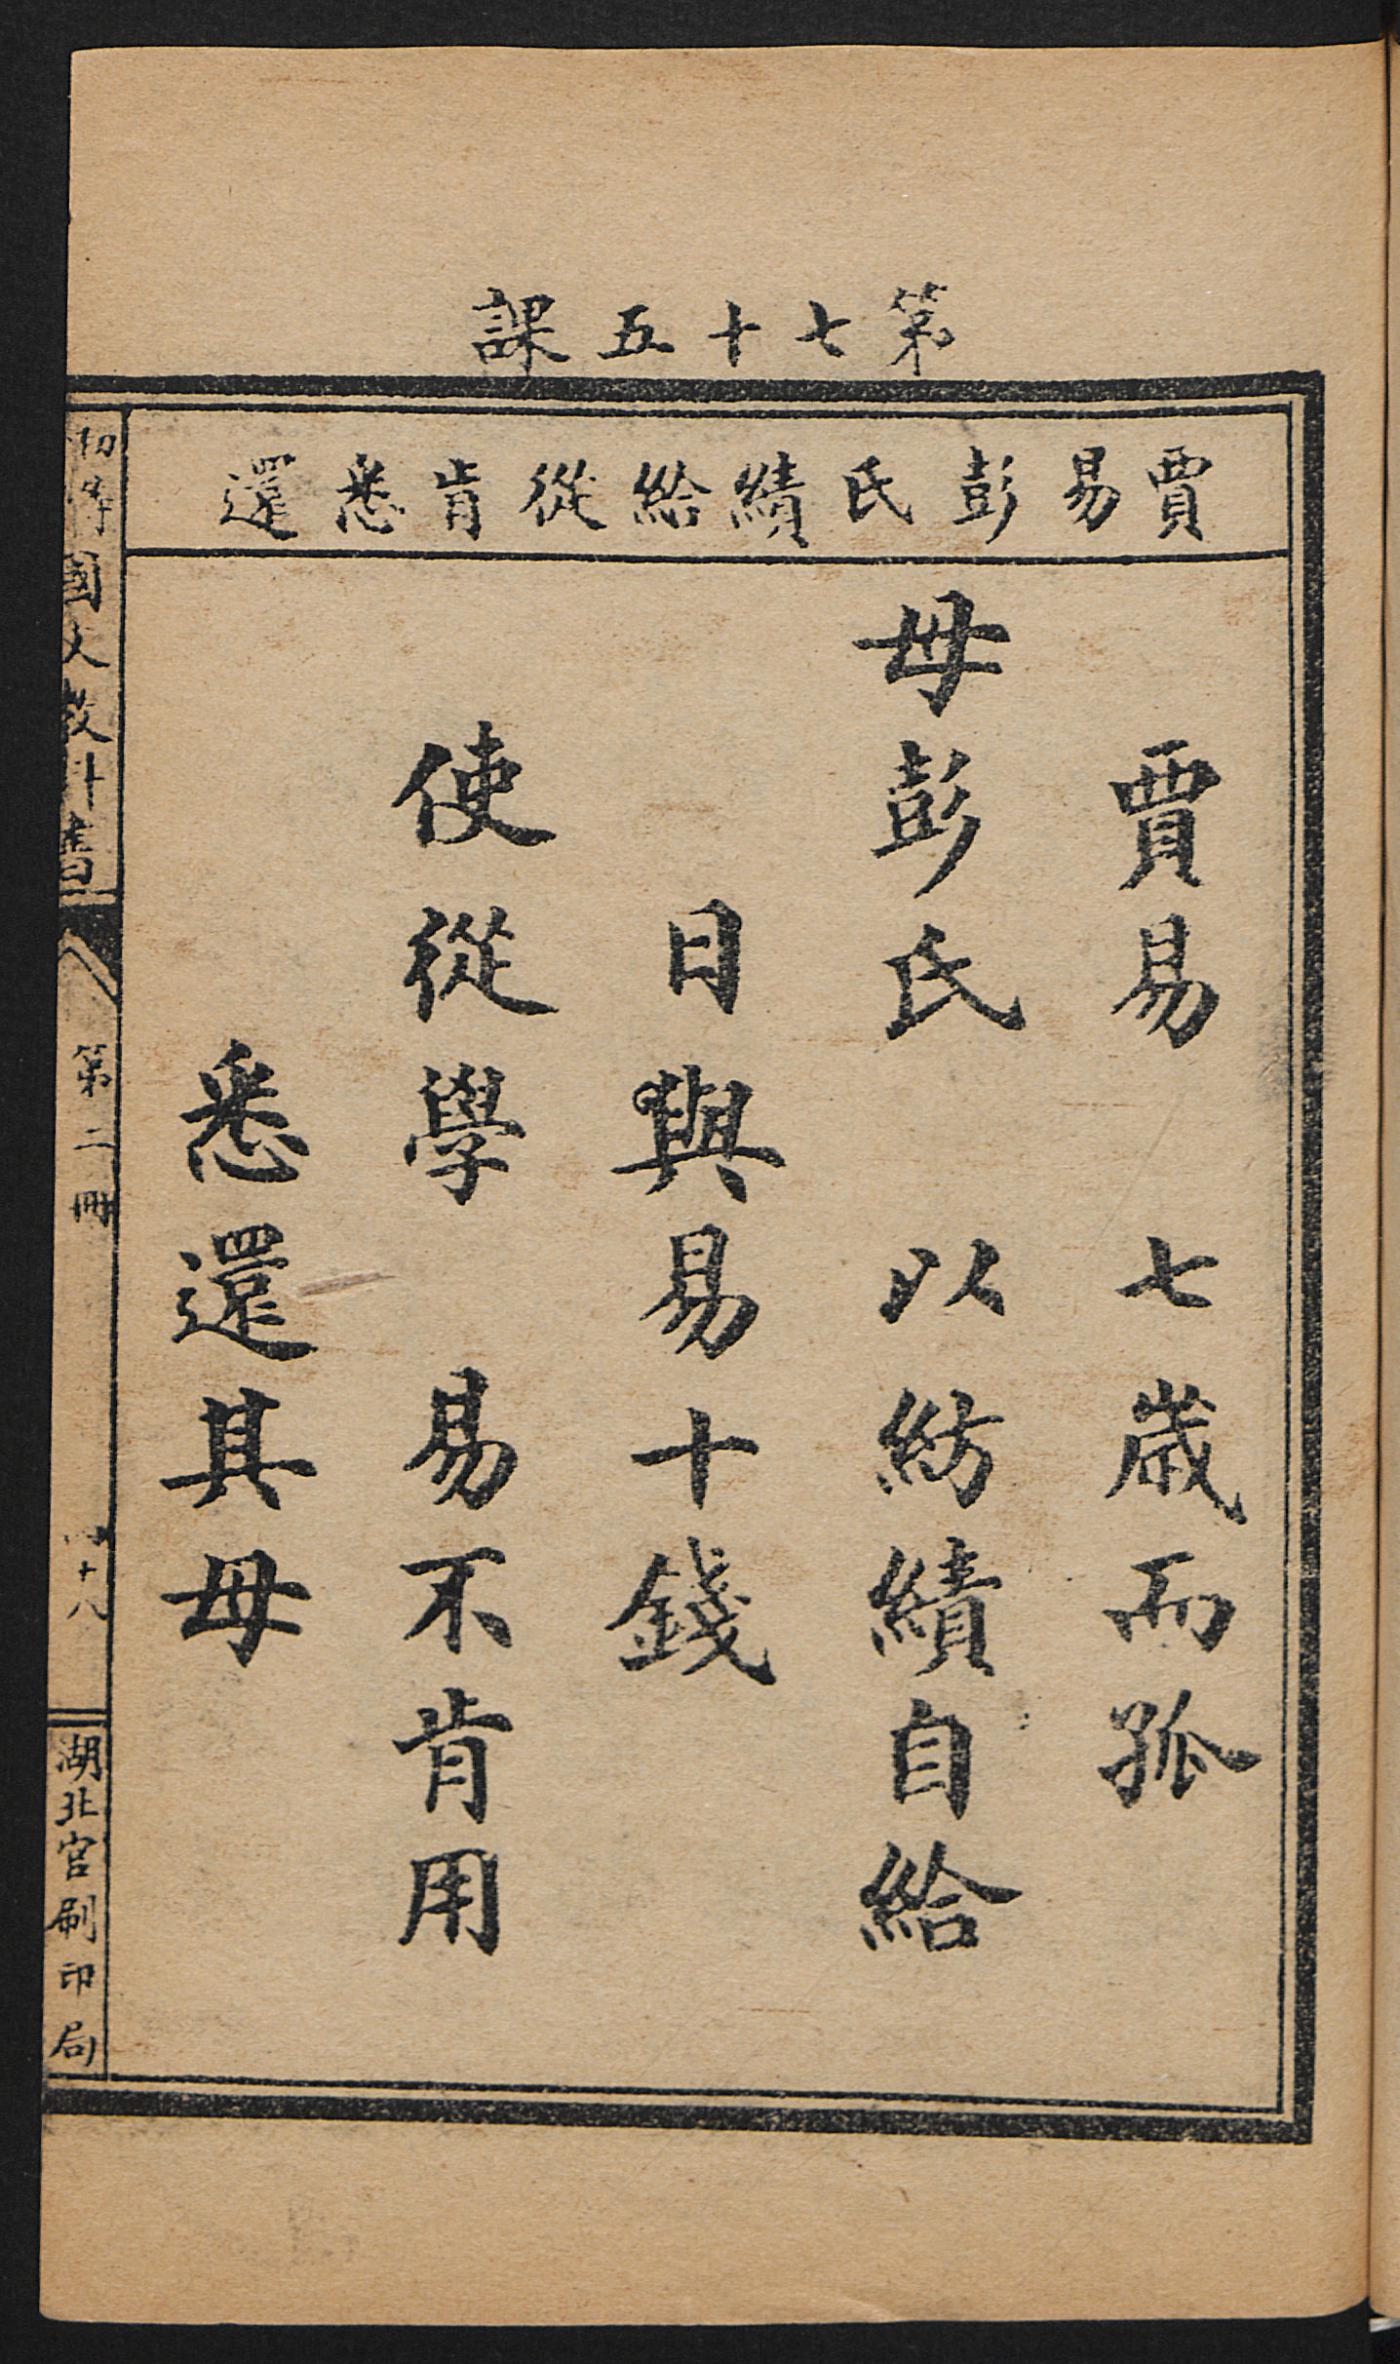 第七十五課
賈易彭氏績給從肯悉還
賈易 七歲而孤
母彭氏 以紡績自給
日與易十錢
使從學 易不肯用
悉還其母
初等國文教科書
第二冊
四十八
湖北官刷印局